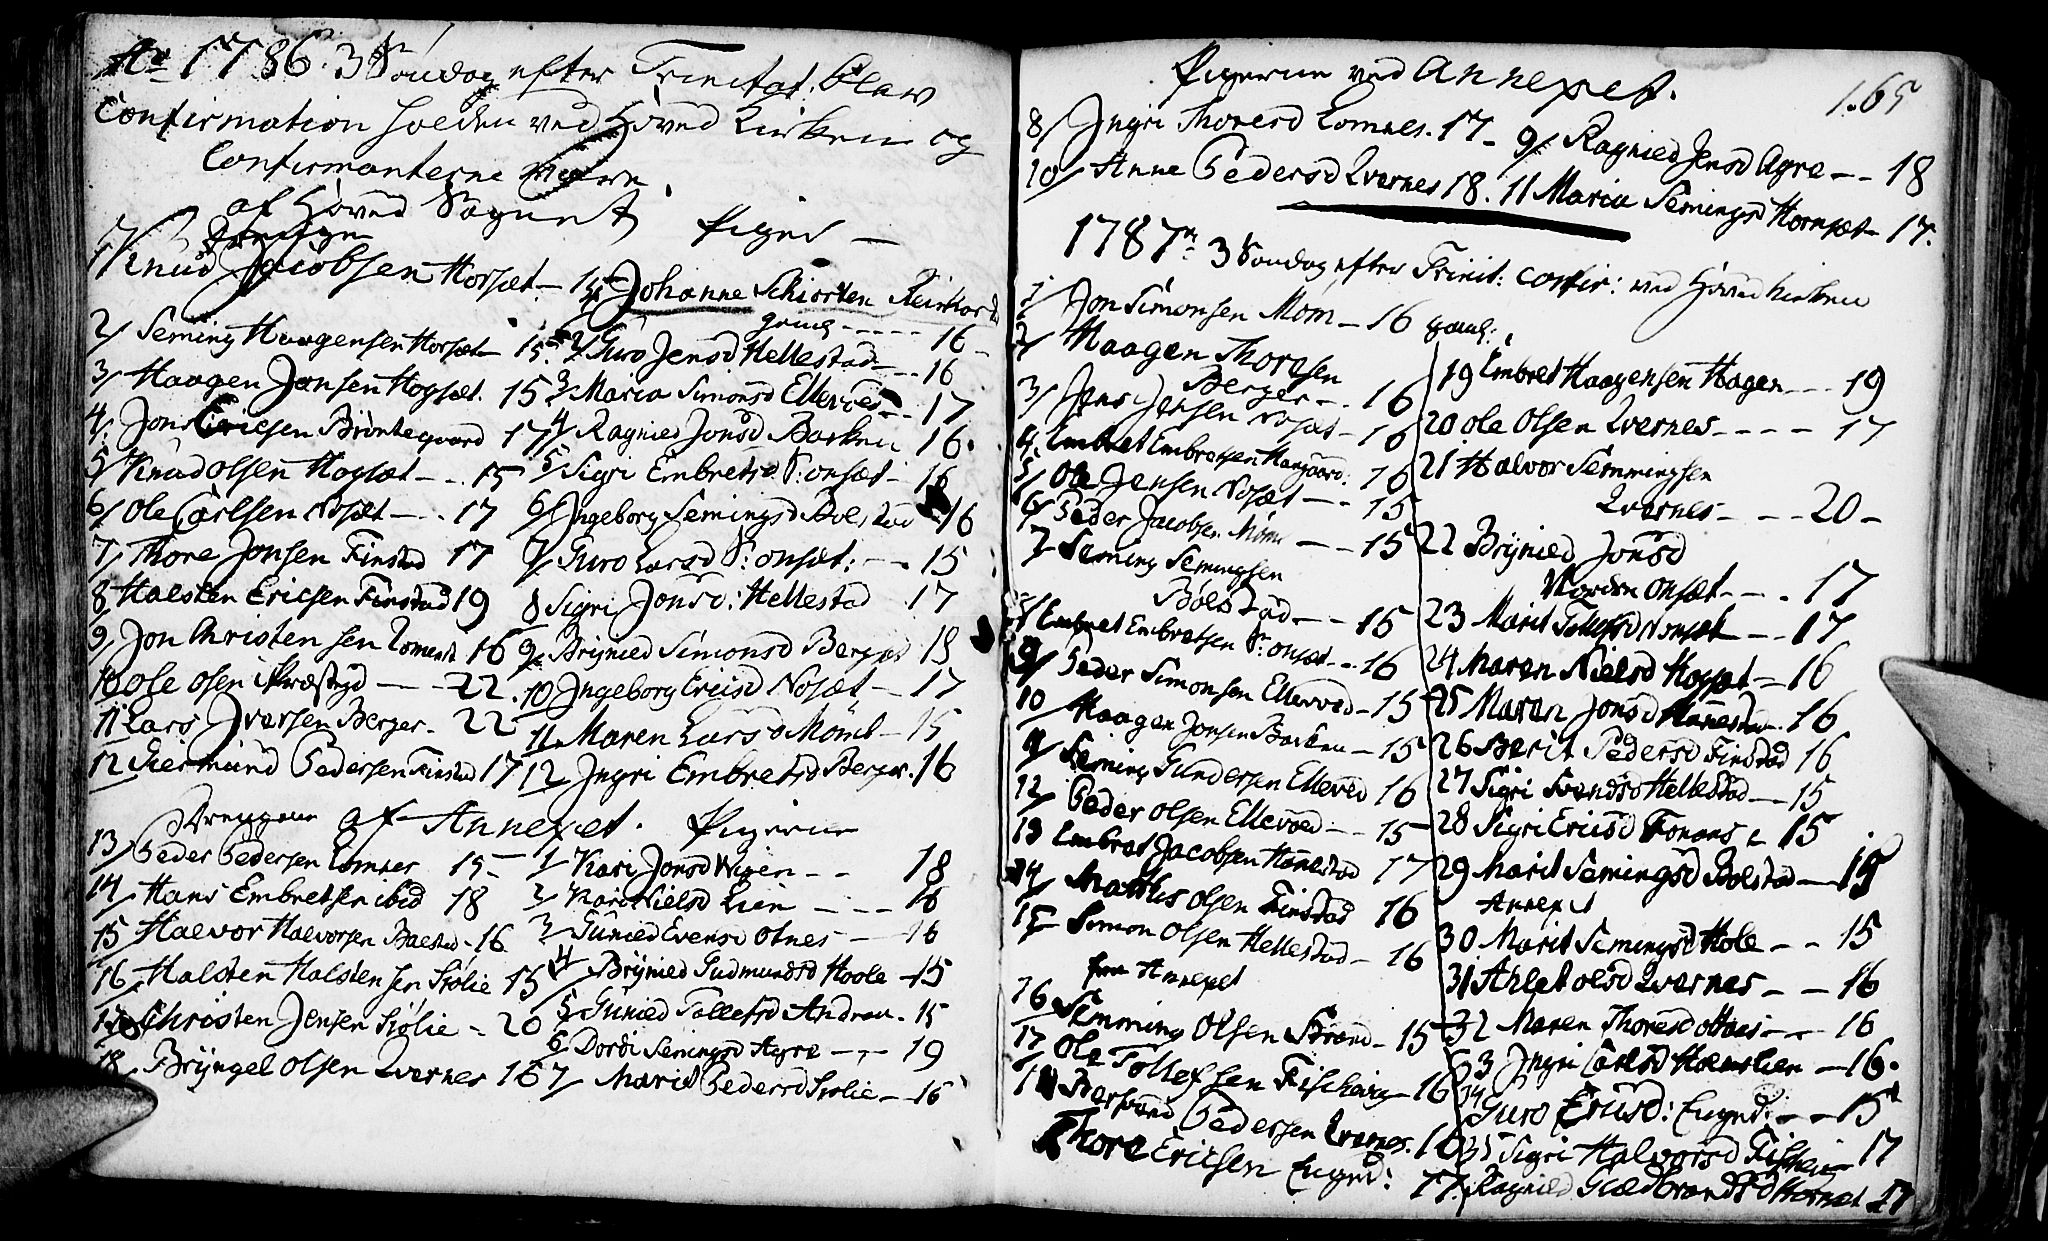 Ao 1786. 3 Søndag efter Trinitat: blew
Confirmation holden ved Hoved Kirken og
Confirmanterne
af Hoved Sognet
Drenge Piger
1/ Knud Jacobsen Horsæt
2/ Seming Haagensen Horsæt 15
3/ Haagen Jonsen Hogsæt. 15
4/ Jon Ericsen 17
5/ Knud Olsen Hogsæt 15
6/ Ole Carlsen Nosæt 17
7/ Thore Jonsen Finstad 17
8 Halsten Ericsen Finstad 19
9/ Jon Christensen 16
10 Ole Olsen i Præstegd 22.
11 Lars Iversen Berger 22
12 Giermund Pedersen Finstad 17
1 Johanne Schiorten
gaml 16
2/ Guro Jensd Hellestad 16
3 Maria Simonsd Ellevoed 17
4 Ragnied Jonsd Barken 16.
5/ Sigri Embretsd S: onsæt 16
6/ Ingeborg Semingsd Bolstad 16
7/ Guro Larsd S: onsæt: 15
8 Sigri Jonsd: Hellestad 17
9 Brynied Simonsd Berger 18
10 Ingeborg Ericsd Nosæt 17
11 Maren Larsd 15
12 Ingri Embretsd Berger. 16
Drengene af Annexet. Pigerne
13/ Peder Pedersen Lomnes 15
14/ Hans Embretsen ibid 18
15 Halvor Halvorsen 16
16 Halsten Halstensen Siølie 15
17 Christen Jensen Siølie 20
18 Bryngel Olsen Qvernes 16
1/ Kari Jonsd 18
2/ Kari Nielsd Lien 16
3 Gunied Evensd Otnes 16
4/ Brynied Gudmundsd Hoole 15
5 Gunied Tollefsd Andraa 15
6 Dordi Semingsd Agre 19
7/ Marit Pedersd Siølie 16
165
Pigerne ved Annexet.
8/ Ingri Thoresd Lomnes. 17 9/ Ragnied Jensd Agre 18
10/ Anne Pedersd Qvernes 18. 11 Maria Semingsd Hornset 17.
1787 3 Søndag efter Trinit: confir: ved Hoved kirken
1/ Jon Simonsen Mom 16 gaml:
2/ Haagen Thoresen
Berger 16
3/ Jens Jensen Nosæt 16
4. Embret Embretsen 16
5/ Ole Jensen Nosæt 15
6/ Peder Jacobsen Mom 15
7 Seming Semingsen
Bolstad 15
8/ Embret Embretsen S: onsæt 16
9/ Peder Simonsen Ellevoed 15
10 Haagen Jonsen Barken 15
Seming Gundersen Ellevod 16
12/ Peder Olsen Ellevoed 15
13 Embret Jacobsen Hanestad 17
14/ Matthis Olsen Finstad 16
15 Simon Olsen Hellestad 16
fra Annexet
16 Semming Olsen Strand 15
17 Ole Tollefsen Fischvig 16
18 Pedersen Qvernes. 16
Thore Ericsen Engnd: 17.
19 Embret Haagensen Hagen 19
20 Ole Olsen Qvernes 17
21 Halvor Semmingsen
Qvernes 20
22 Brynied Jonsd
Norden onsæt 17
23 Marit Tollefsd Nonsæt 17
24 Maren Nielsd Hogset 16
25 Maren Jonsd Hanestad 16
26 Berit Pedersd Finstad 16
27 Sigri Svendsd Hellestad 15
28 Sigri Ericsd Fonaas 15
29 Marit Semingsd Bolstad 15
Annext
30 Marit Semingsd Hole 15
31 Ahlet Olsd Qvernes 16
32 Maren Thoresd 16
33 Ingri Carlsd 16.
34 Guro Ericsd: Engnd: 15
35 Sigri Halvorsd 17
Ragnild Guldbrandsd Hornset 17